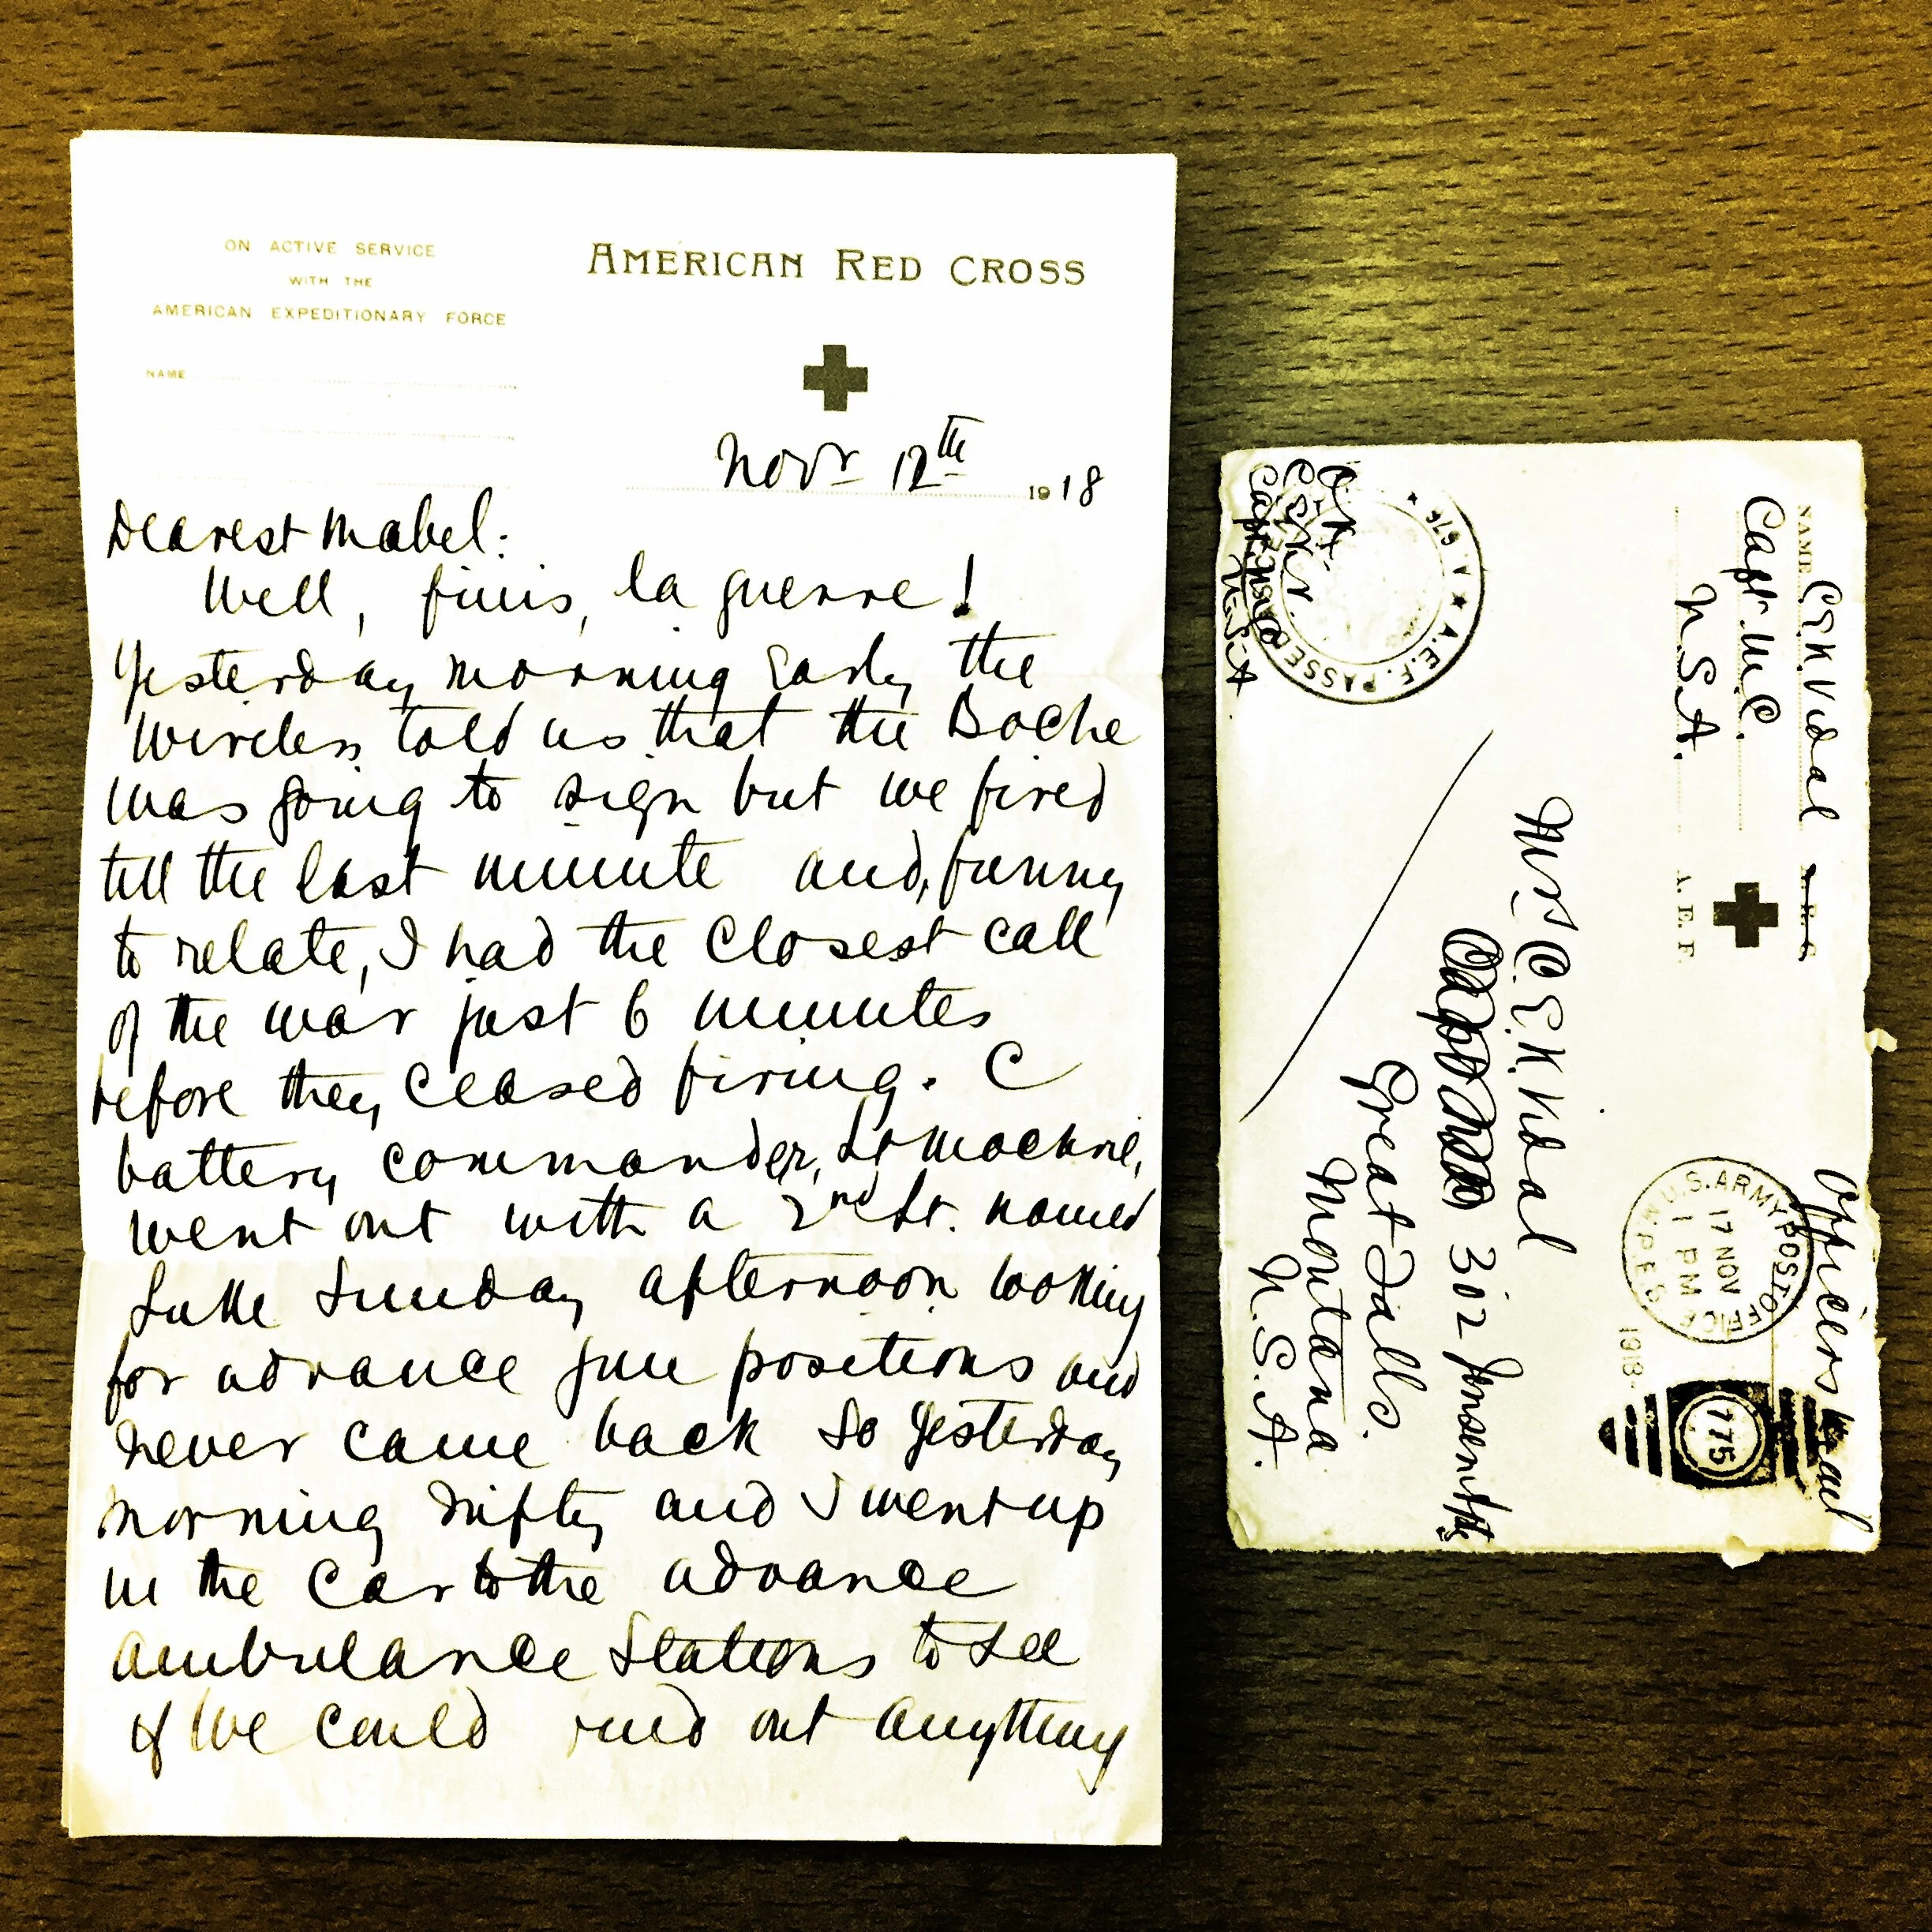 ON ACTIVE SERVICE
WITH THE
AMERICAN EXPEDITIONARY FORCE
NAME
AMERICAN RED CROSS
Novr 12th 1918
Dearest Mabel:
Well, finis, la guerre!
Yesterday morning early the
wireless told us that the Boche
was going to sign but we fired
till the last minute and, funny
to relate, I had the closest call
of the war just 6 minutes
before they ceased firing. C
battery commander, Lt
went out with a 2nd Lt. named
Luke Sunday afternoon looking
for advance gun positions and
never came back so yesterday
morning and I went up
in the car to the advance
ambulance stations to see
if we could find out anything
NAME CEK Vidal A.R.C.
Capt. M.C.
U.S.A. A.E.F
Officers Mail
U.S. ARMY POST OFFICE
17 NOV
1 PM
1918
775
Mrs C.E.K. Vidal
302
Great Falls.
Montana
U.S.A.
A.E.F. PASSED
A. 676
CEK Vidal
Capt. M.C.
U.S.A